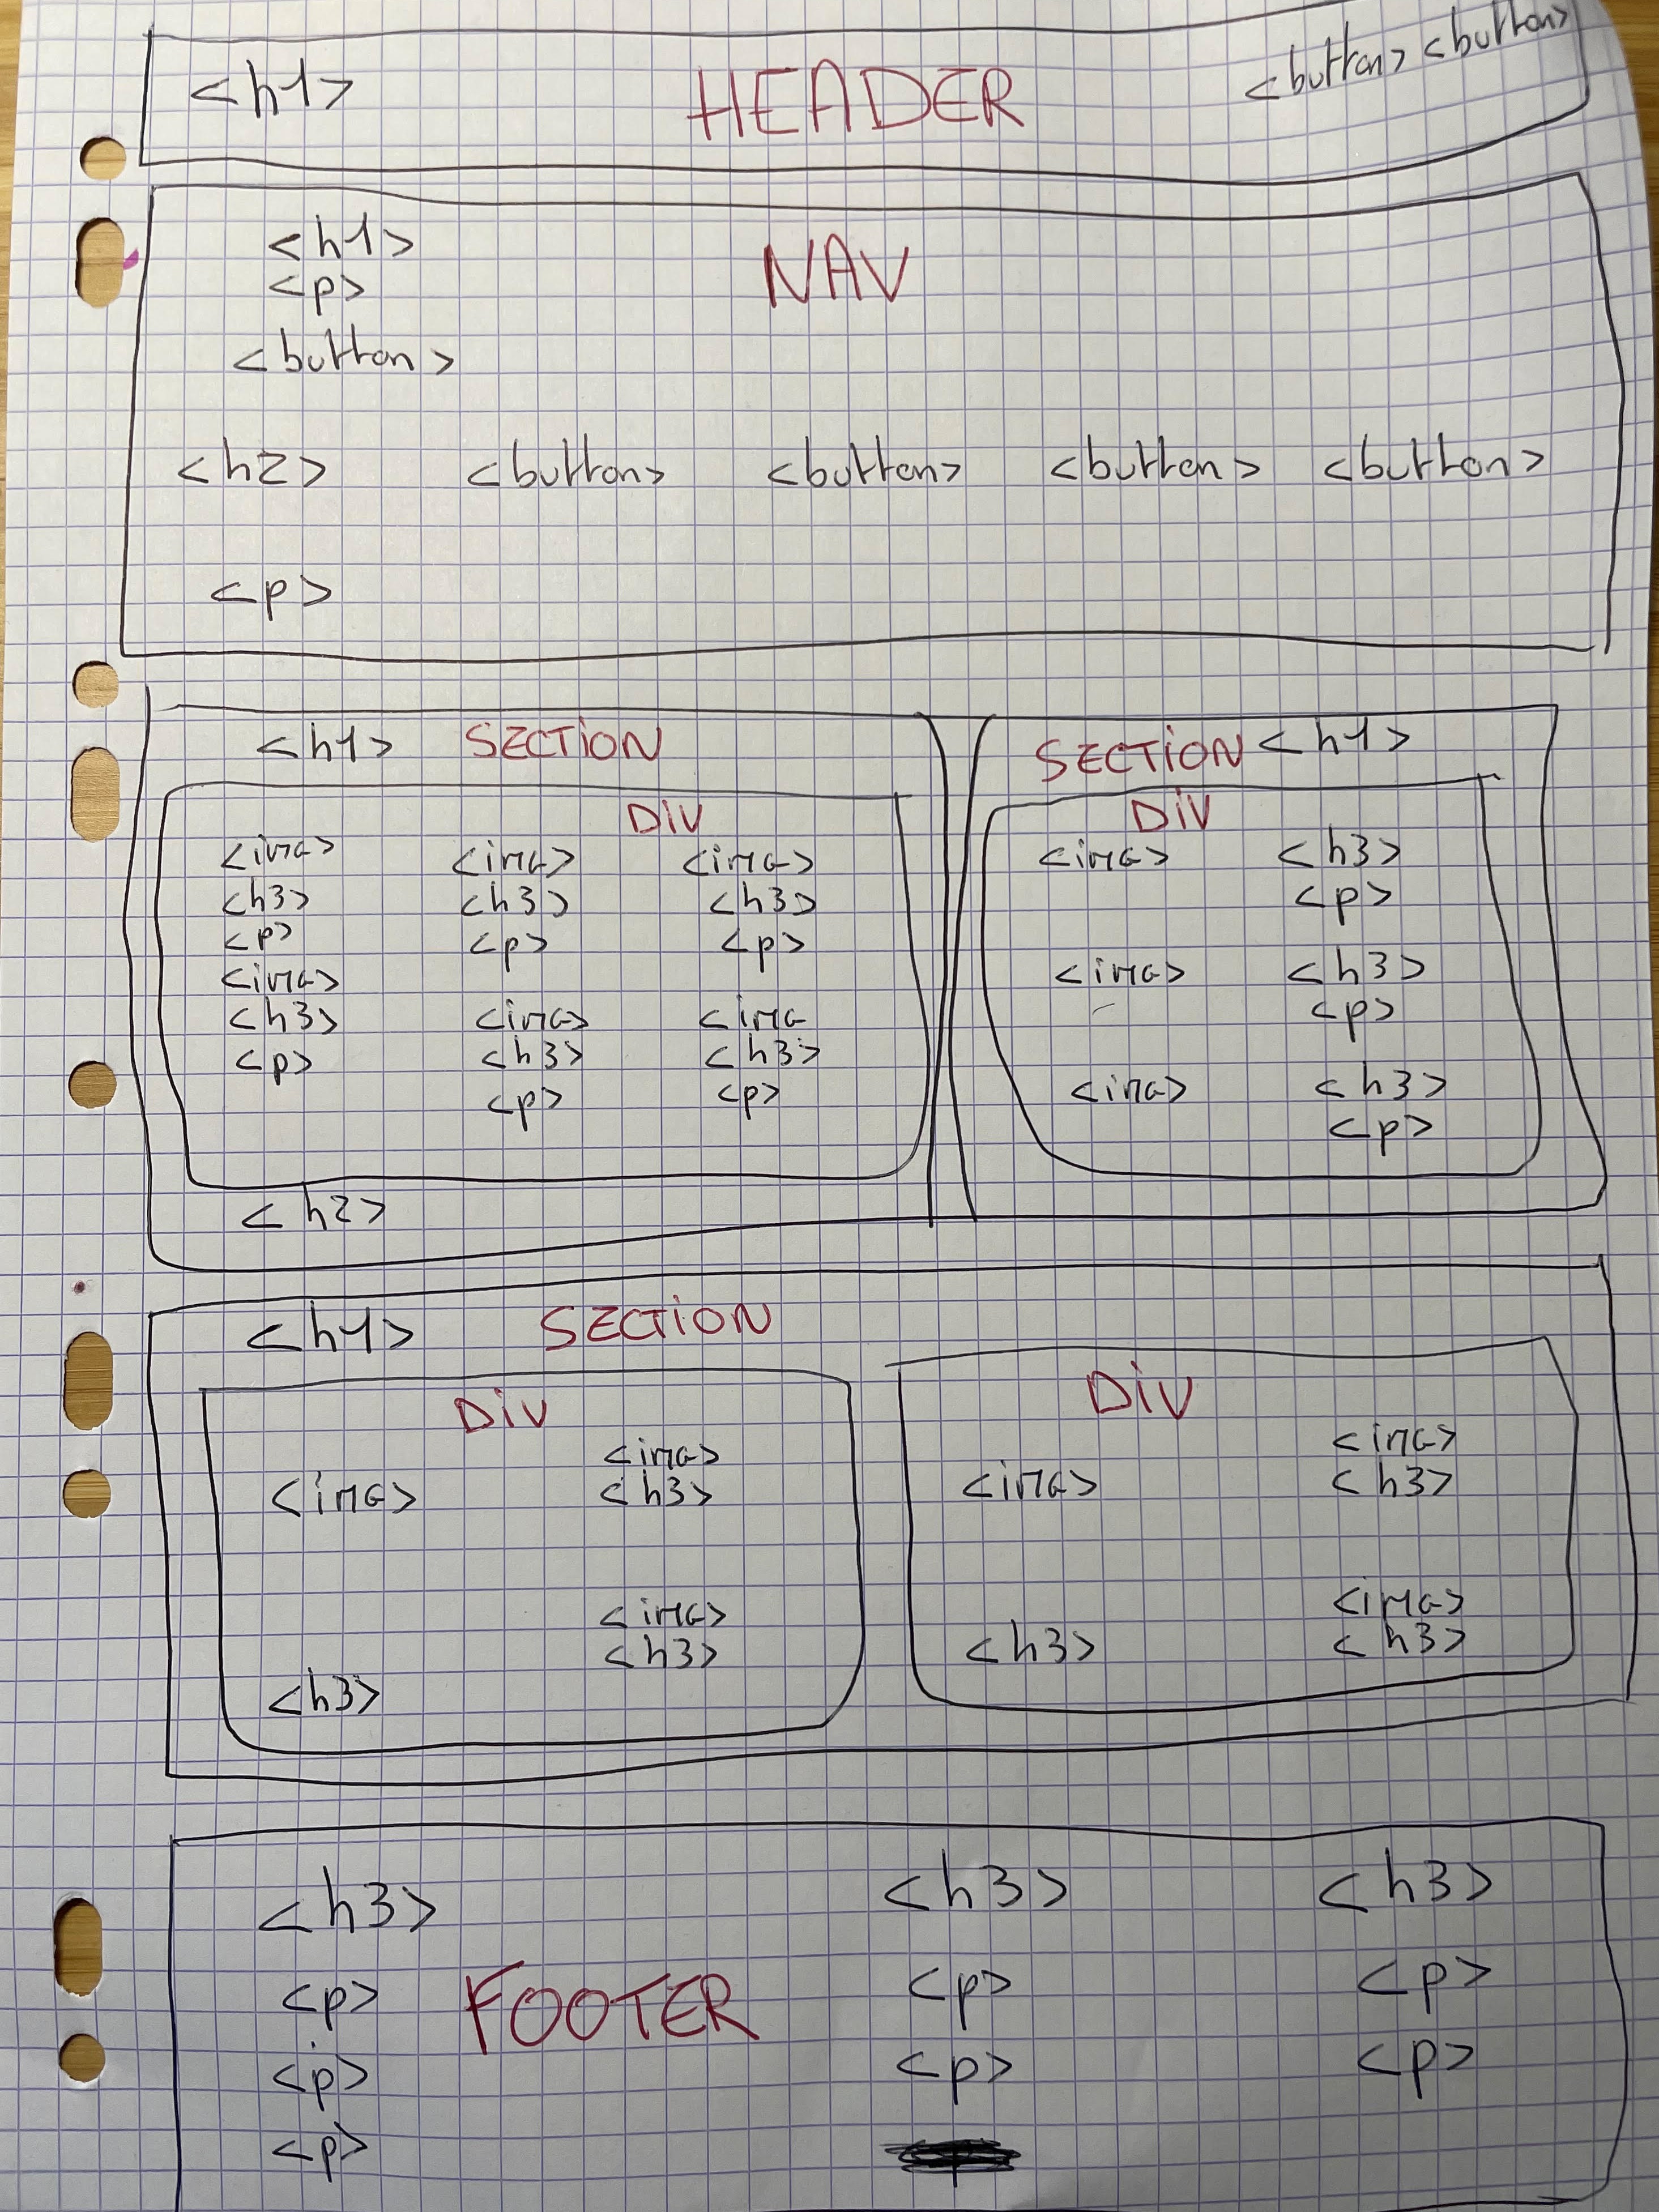 <h1> HEADER <button> <button>
<h1> NAV
<p>
<button>
<h2> <button> <button> <button> <button>
<p>
<h1> SECTION
DiV
<imG> <imG> <imG>
<h3> <h3> <h3>
<p> <p> <p>
<imG>
<h3> <imG> <imG
<p> <h3> <h3>
<p> <p>
<h2>
SECTiON <h1>
DiV
<imG> <h3>
<p>
<imG> <h3>
<p>
<imG> <h3>
<p>
<h1> SECTiON
DiV
<imG>
<imG> <h3>
<imG>
<h3>
<h3>
DiV
<imG>
<imG> <h3>
<imG>
<h3> <h3>
<h3> <h3> <h3>
<p> FOOTER <p> <p>
<p> <p> <p>
<p>